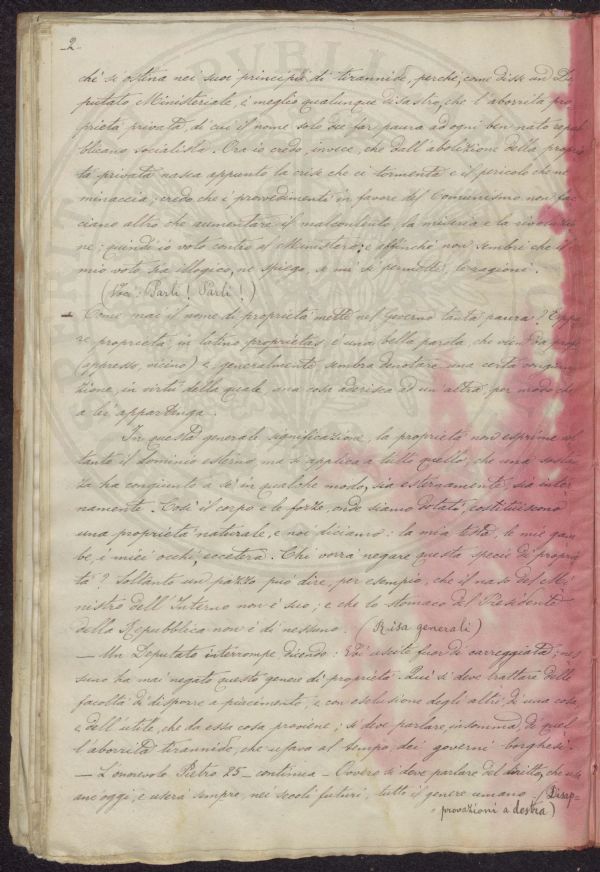 2.
chè si ostina nei suoi principii di tirannide, perchè, come disse un De-
putato Ministeriale, è meglio qualunque disastro, che l'aborrita pro-
prietà privata, di cui il nome solo dee far paura ad ogni ben nato repub-
blicano socialista. Ora io credo, invece, che dall'abolizione della proprie-
tà privata nasca appunto la crise che ci tormenta e il pericolo che ne
minaccia; credo che i provvedimenti in favore del Comunismo non fac-
ciano altro che aumentare il malcontento, la miseria e la rivoluzio-
ne; quindi io voto contro al Ministero; e affinchè non sembri che il
mio voto sia illogico, ne spiego, se mi si permette, le ragioni.
(Voci: Parli! Parli!)
— Come mai il nome di proprietà mette nel Governo tanta paura? Eppu-
re proprietà, in latino proprietas, è una bella parola, che vien da prope
(appresso, vicino) e, generalmente, sembra denotare una certa congiun-
zione, in virtù della quale, una cosa aderisca ad un'altra, per modo che
a lei appartenga.
In questa generale significazione, la proprietà non esprime sol-
tanto il dominio esterno, ma si applica a tutto quello, che una sostan-
za ha congiunto a sè in qualche modo, sia esternamente, sia inter-
namente. Così il corpo e le forze, onde siamo dotati, costituiscono
una proprietà naturale, e noi diciamo: la mia testa, le mie gam-
be, i miei occhi, eccetera. Chi vorrà negare questa specie di proprie-
tà? Soltanto un pazzo può dire, per esempio, che il naso del Mi-
nistro dell'Interno non è suo; e che lo stomaco del Presidente
della Repubblica non è di nessuno. (Risa generali)
— Un Deputato interrompe dicendo: Voi uscite fuor di carreggiata; nes-
suno ha mai negato questo genere di proprietà. Qui si deve trattare della
facoltà di disporre a piacimento, e con esclusione degli altri, di una cosa
e dell'utile, che da essa cosa proviene; si deve parlare, insomma, di quel-
l'aborrita tirannide, che usava al tempo dei governi borghesi.
— L'onorevole Pietro 85 — continua — Ovvero si deve parlare del diritto, che usa
anc'oggi, e userà sempre, nei secoli futuri, tutto il genere umano — (Disap-
provazioni a destra)